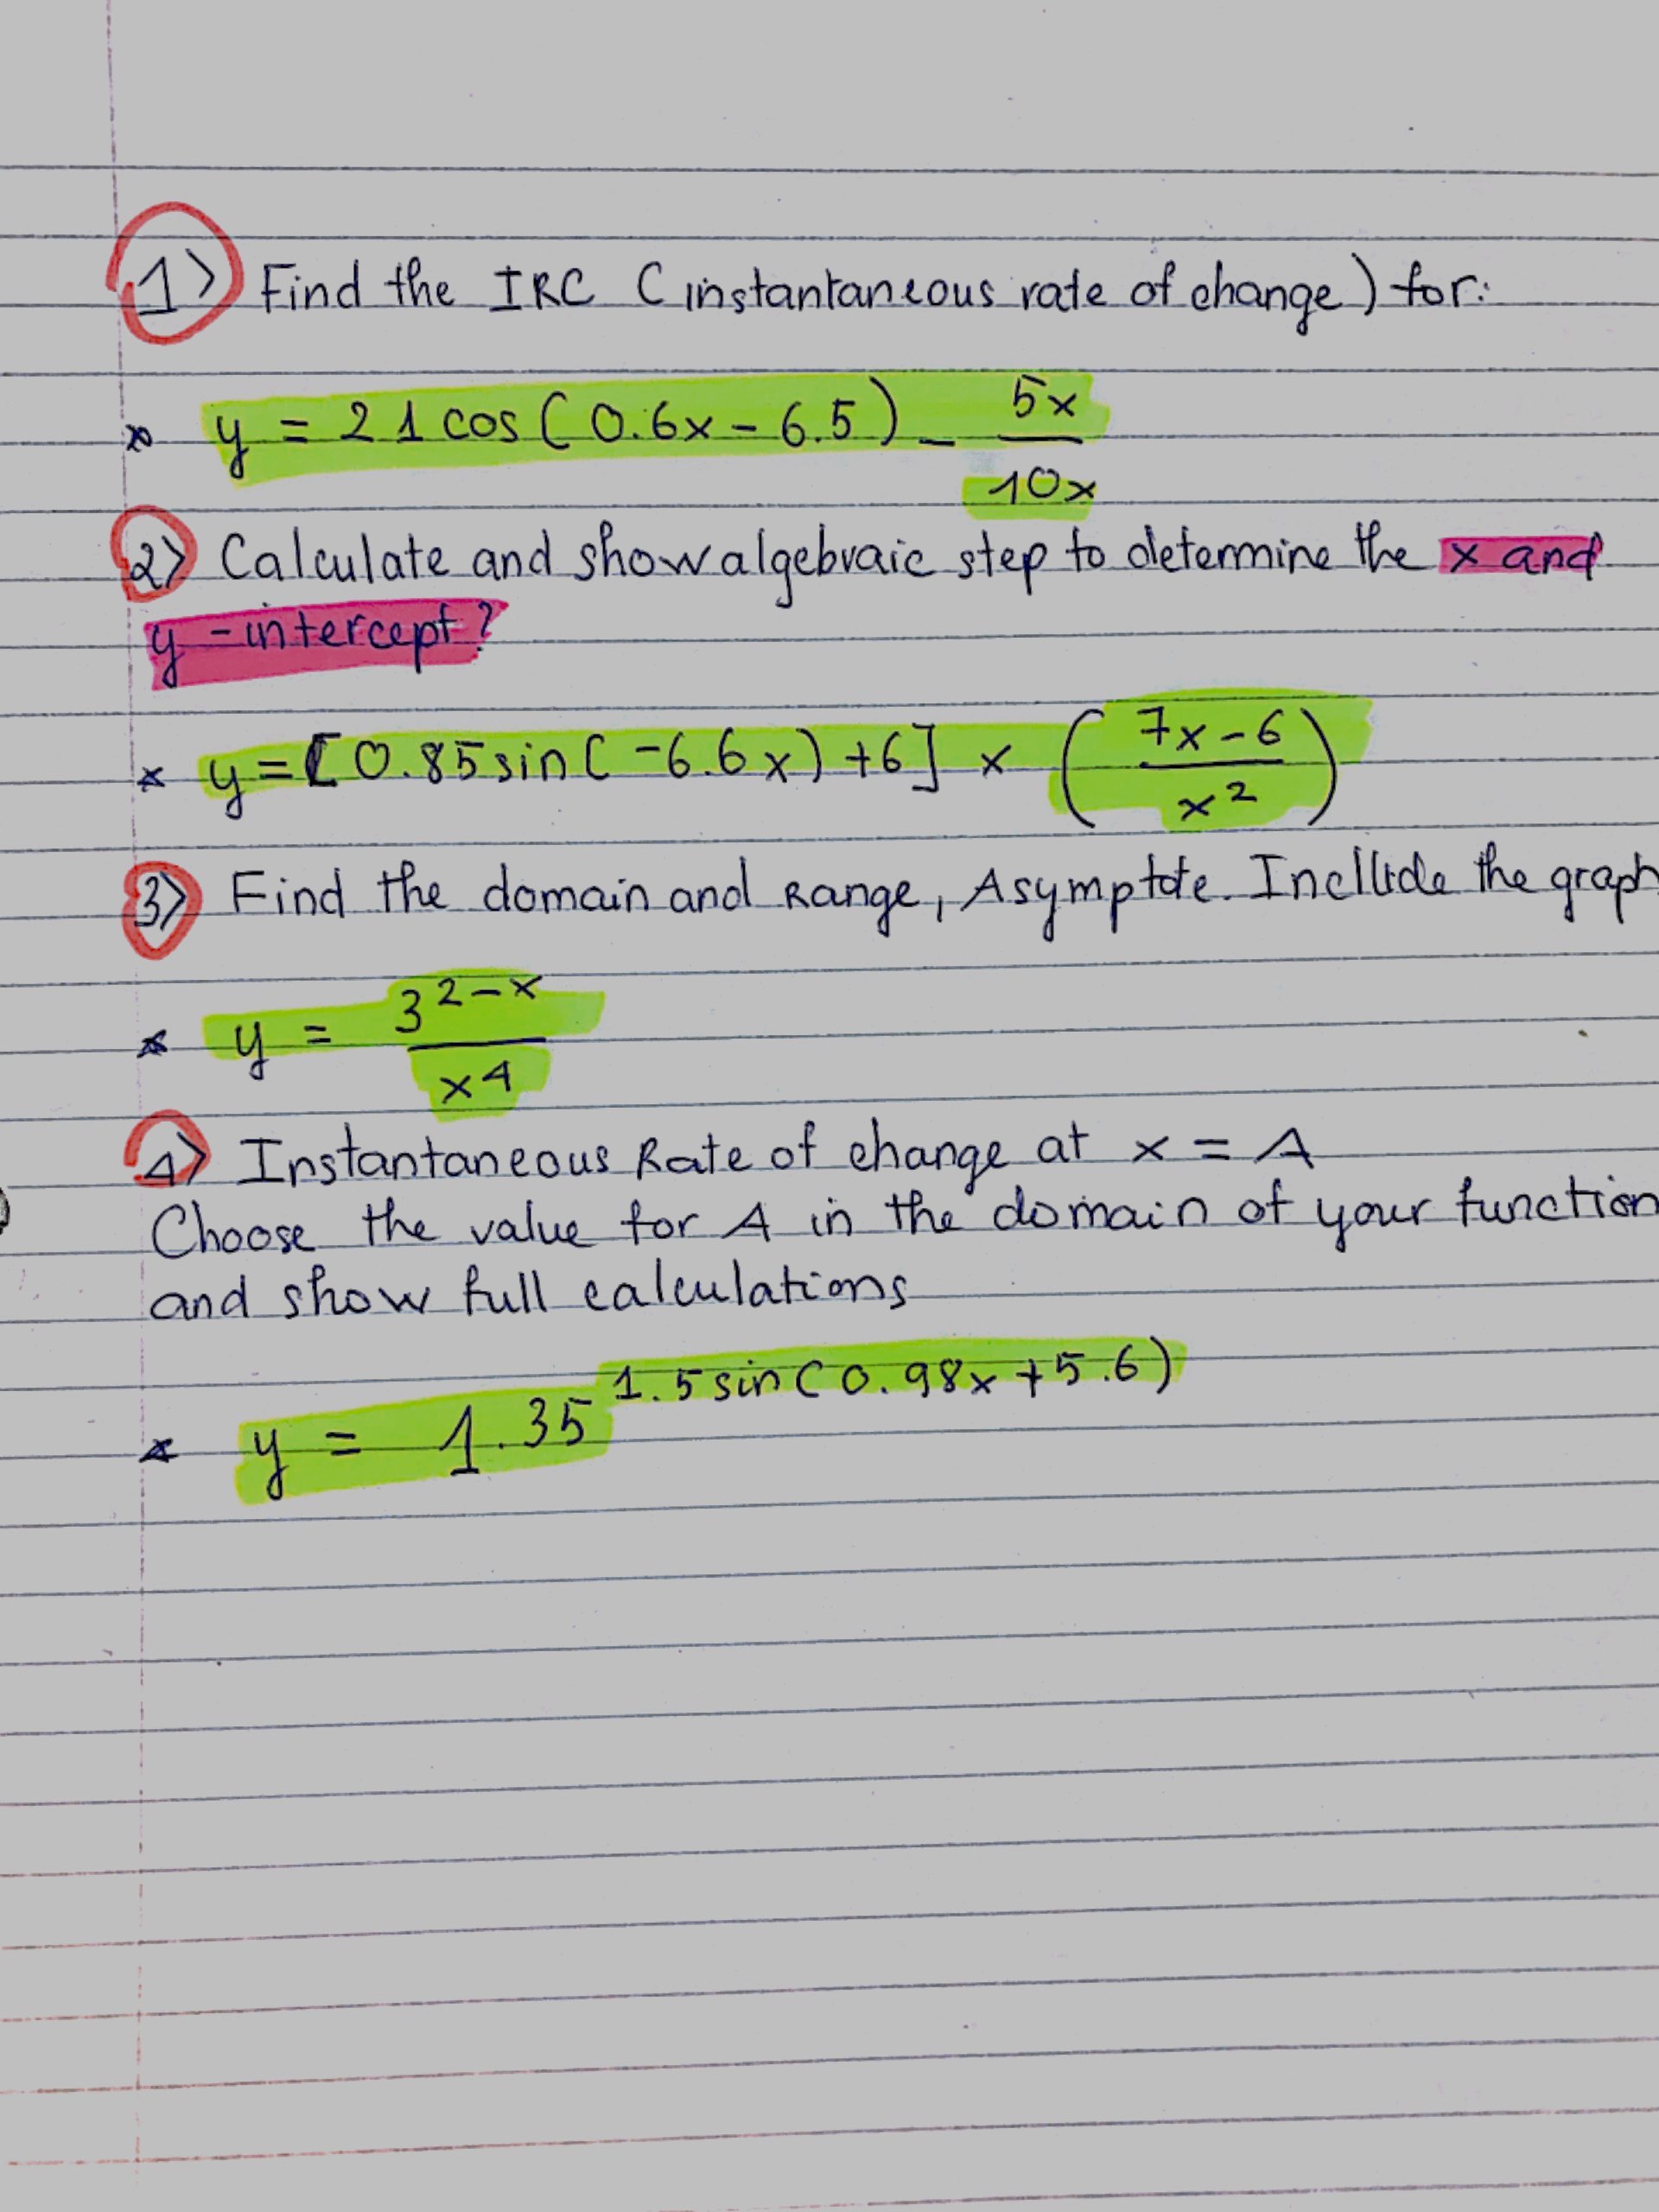 1) Find the IRC (instantaneous rate of change) for:
* y = 21 cos(0.6x - 6.5) - 5x/10x
2) Calculate and show algebraic step to determine the x and
y-intercept?
* y = [0.85 sin(-6.6x) + 6] × ((7x-6)/x²)
3) Find the domain and Range, Asymptote. Include the graph
* y = 3^(2-x)/x⁴
4) Instantaneous Rate of change at x = A
Choose the value for A in the domain of your function
and show full calculations
* y = 1.35^(1.5 sin(0.98x + 5.6))